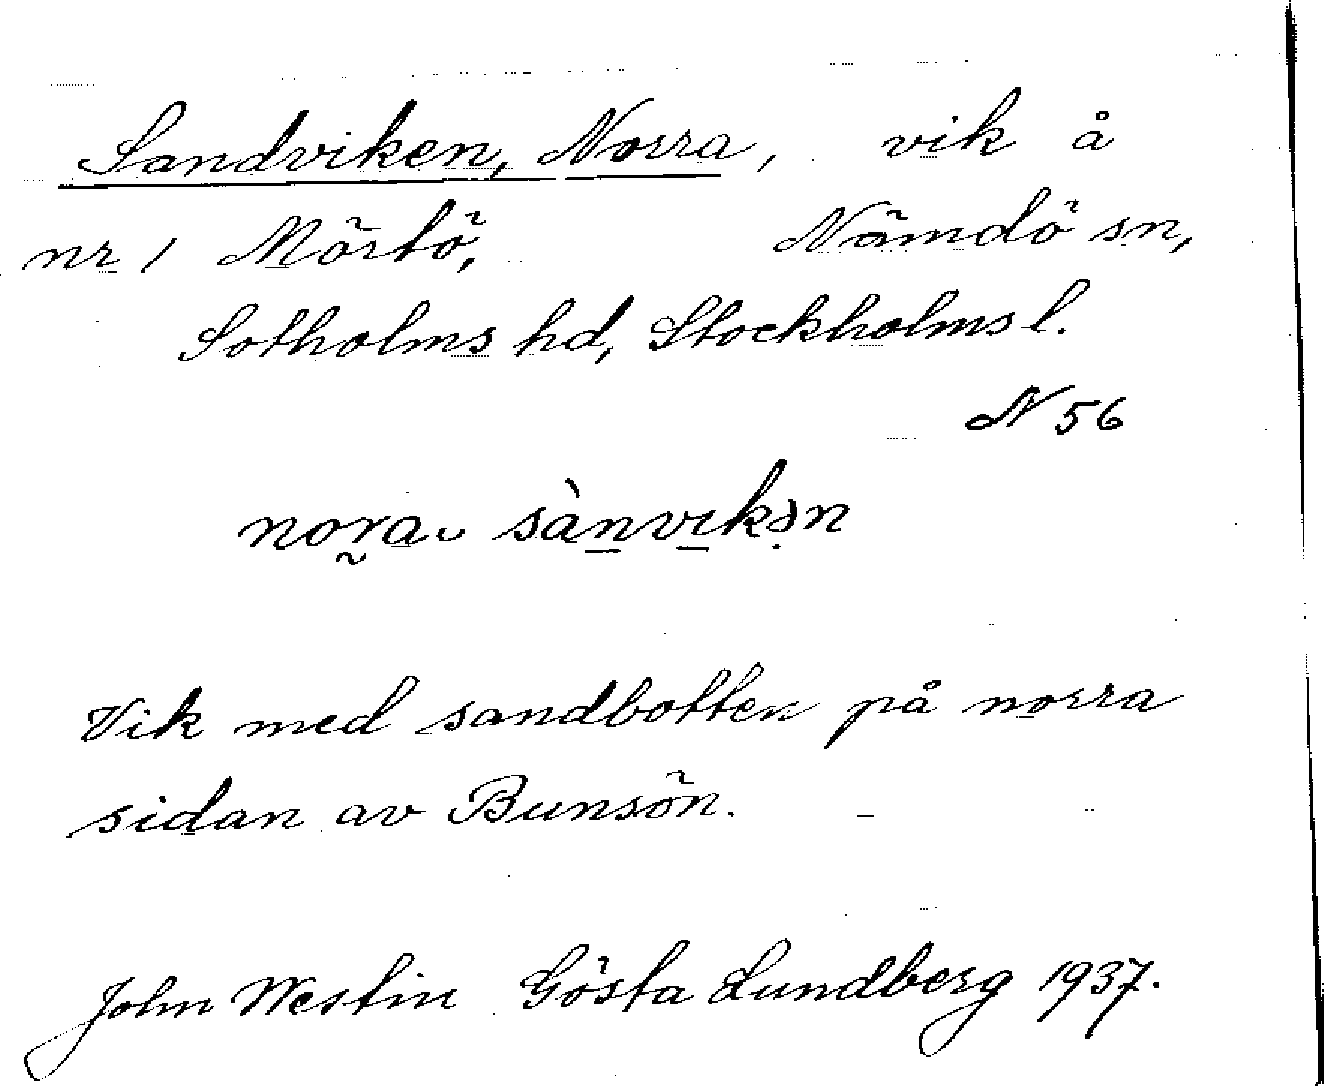 Sandviken, Norra, vik å
nr 1 Mörtö, Nämdö sn,
Sotholms hd, Stockholms l.
N 56
nora sànvikən
Vik med sandbotten på norra
sidan av Bunsön.
John Westin Gösta Lundberg 1937.